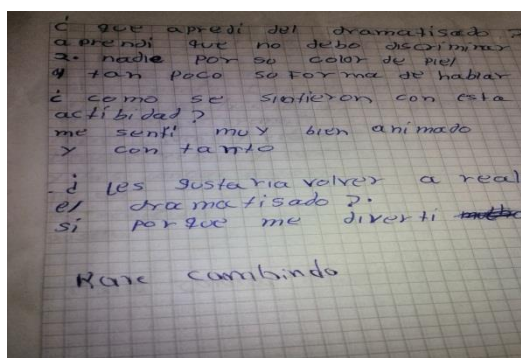 ¿ que apredi del dramatisado ?
aprendi que no debo discriminar
a. nadie por so color de piel
y tan poco so forma de hablar
¿ como se sintieron con esta
actibidad ?
me senti muy bien animado
y con tanto
¿ Les gustaria volver a real
el dramatisado ?.
si porque me diverti
cambindo